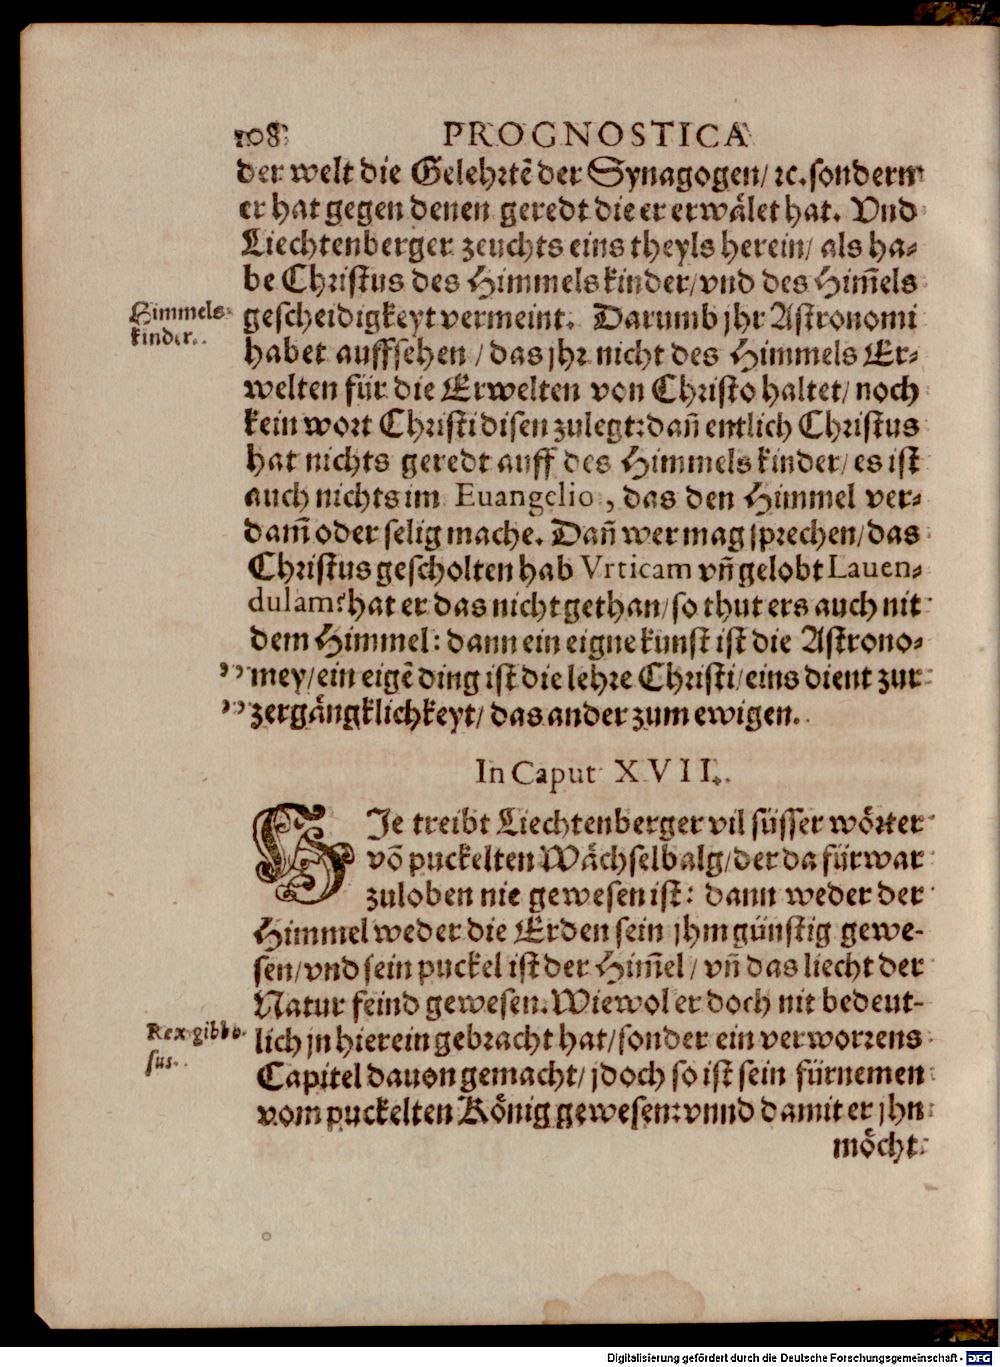 108 PROGNOSTICA
der welt die Gelehrtẽ der Synagogen/ ꝛc. sondern
er hat gegen denen geredt die er erwålet hat. Vnd
Liechtenberger zeuchts eins theyls herein/ als ha⸗
be Christus des Himmels kinder/ vnd des Him̃els
Himmels
kinder.
gescheidigkeyt vermeint. Darumb jhr Astronomi
habet auffsehen / das jhr nicht des Himmels Er⸗
welten für die Erwelten von Christo haltet/ noch
kein wort Christi disen zulegt: dañ entlich Christus
hat nichts geredt auff des Himmels kinder/ es ist
auch nichts im Euangelio, das den Himmel ver⸗
dam̃ oder selig mache. Dañ wer mag sprechen/ das
Christus gescholten hab Vrticam vñ gelobt Lauen⸗
dulam? hat er das nicht gethan/ so thut ers auch nit
dem Himmel: dann ein eigne kunst ist die Astrono⸗
„ mey/ ein eigẽ ding ist die lehre Christi/ eins dient zur
„ zergångklichkeyt/ das ander zum ewigen.
In Caput XVII.
HJe treibt Liechtenberger vil süsser wörter
võ puckelten Wåchselbalg/ der da fürwar
zuloben nie gewesen ist: dann weder der
Himmel weder die Erden sein jhm günstig gewe-
sen/ vnd sein puckel ist der Him̃el / vñ das liecht der
Natur feind gewesen. Wiewol er doch nit bedeut-
Rex gibbo-
sus.
lich jn hierein gebracht hat/ sonder ein verworrens
Capitel dauon gemacht/ jdoch so ist sein fürnemen
vom puckelten König gewesen: vnnd damit er jhn
möcht
Digitalisierung gefördert durch die Deutsche Forschungsgemeinschaft - DFG